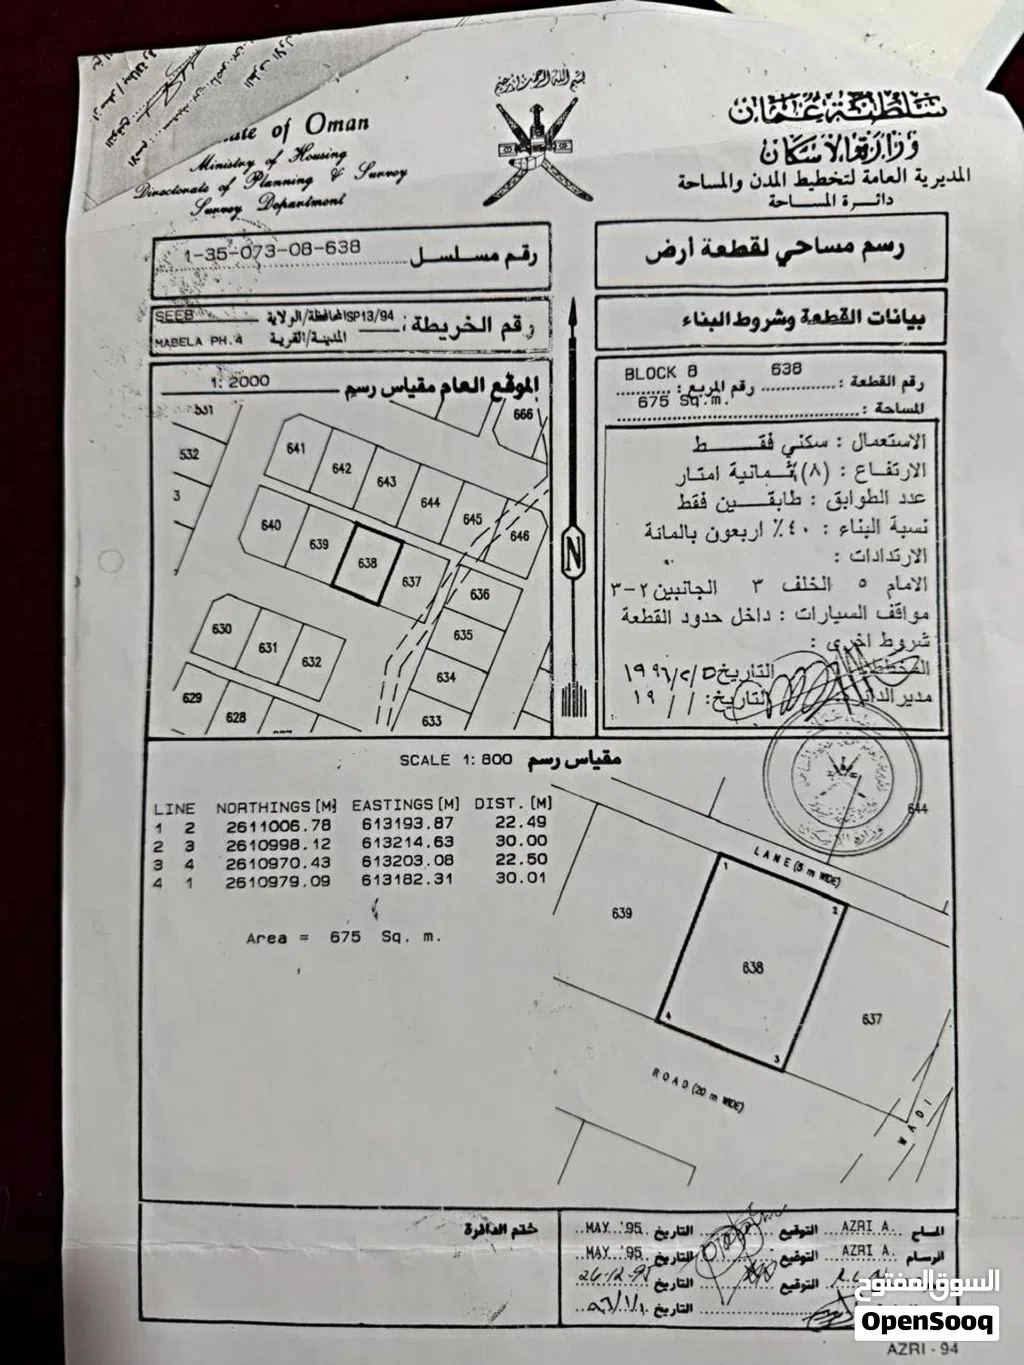 بسم الله الرحمن الرحيم
of Oman
Ministry of Housing
Directorate of Planning & Survey
Survey Department
سلطنة عمان
وزارة الاسكان
المديرية العامة لتخطيط المدن والمساحة
دائرة المساحة
رقم مسلسل 1-35-073-08-638
رسم مساحي لقطعة أرض
رقم الخريطة: SP13/94
المحافظة/الولاية SEEB
المدينة/القرية MABELA PH.4
بيانات القطعة وشروط البناء
الموقع العام مقياس رسم 1: 2000
رقم القطعة : 638 رقم المربع : BLOCK 8
المساحة : 675 Sq.m.
الاستعمال : سكني فقط
الارتفاع : (٨) ثمانية امتار
عدد الطوابق : طابقين فقط
نسبة البناء : ٤٠٪ اربعون بالمائة
الارتدادات :
الامام ٥ الخلف ٣ الجانبين ٢-٣
مواقف السيارات : داخل حدود القطعة
شروط اخرى :
المخطط التاريخ ١٩٩٦/٢/٥
مدير الدائرة التاريخ: / / ١٩
531
532
3
666
641
642
643
644
645
646
640
639
638
637
636
635
634
633
630
631
632
629
628
N
SCALE 1: 800 مقياس رسم
LINE NORTHINGS (M) EASTINGS (M) DIST. (M)
1 2 2611006.78 613193.87 22.49
2 3 2610998.12 613214.63 30.00
3 4 2610970.43 613203.08 22.50
4 1 2610979.09 613182.31 30.01
Area = 675 Sq. m.
644
LANE (5 m WIDE)
1
2
639
638
637
4
3
ROAD (20 m WIDE)
WADI
ختم الدائرة
المساح AZRI A. التوقيع التاريخ MAY '95
الرسام AZRI A. التوقيع التاريخ MAY '95
التوقيع التاريخ 26-12-95
التاريخ
السوق المفتوح
OpenSooq
AZRI - 94